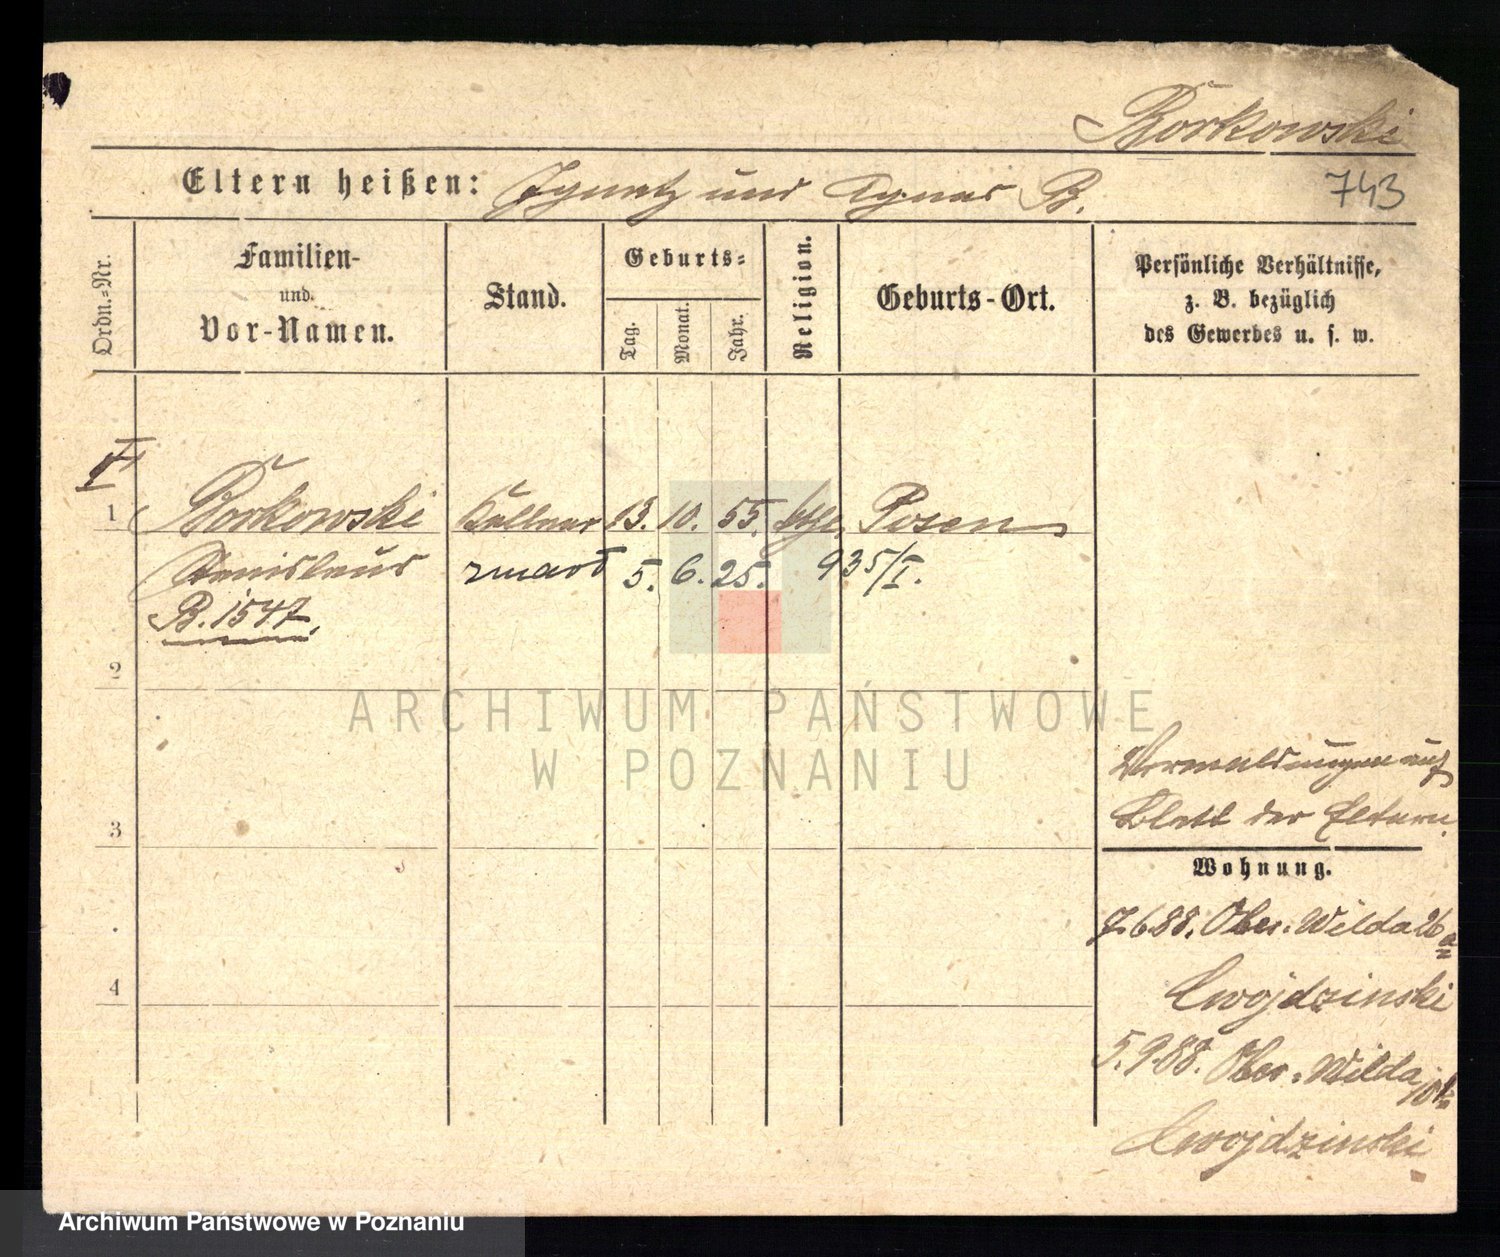 Borkowski
Eltern heißen: Ignatz und Agnes B.
743
Ordn.-Nr.
Familien-
und
Vor-Namen.
Stand.
Geburts-
Tag.
Monat.
Jahr.
Religion.
Geburts-Ort.
Persönliche Verhältnisse,
z. B. bezüglich
des Gewerbes u. s. w.
1 Borkowski Kellner 13. 10. 55. kthl. Posen
Stanislaus zmarł 5. 6. 25. 935/I.
B. 1547.
2
3
4
ARCHIWUM PAŃSTWOWE
W POZNANIU
Vermeldungen auf
Blatt der Eltern.
Wohnung.
7.6.88. Ober-Wilda 26a
Cwojdzinski
5.9.88. Ober-Wilda
Cwojdzinski
Archiwum Państwowe w Poznaniu